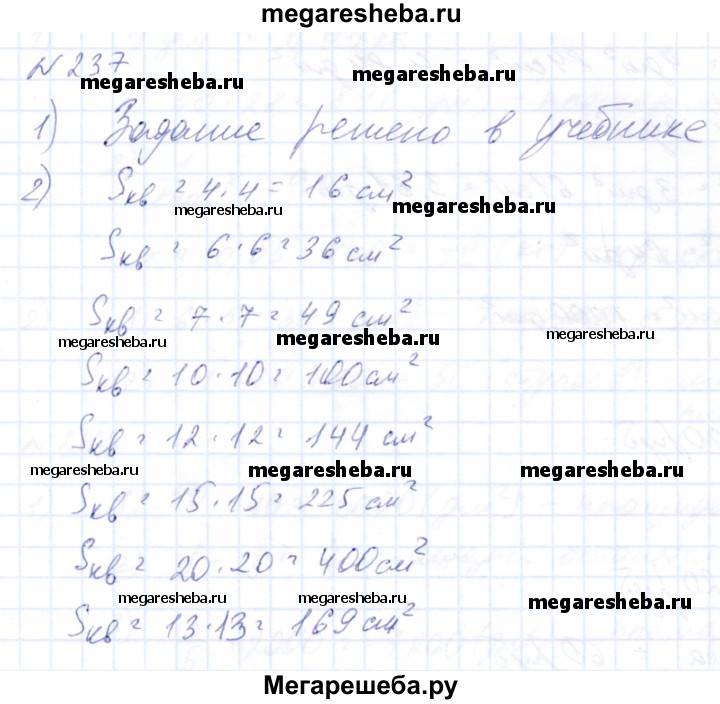 megaresheba.ru
N 237
megaresheba.ru megaresheba.ru
1) Задание решено в учебнике
2) Sкв = 4 · 4 = 16 см²
megaresheba.ru megaresheba.ru
Sкв = 6 · 6 = 36 см²
Sкв = 7 · 7 = 49 см²
megaresheba.ru megaresheba.ru megaresheba.ru
Sкв = 10 · 10 = 100 см²
Sкв = 12 · 12 = 144 см²
megaresheba.ru megaresheba.ru megaresheba.ru
Sкв = 15 · 15 = 225 см²
Sкв = 20 · 20 = 400 см²
megaresheba.ru megaresheba.ru megaresheba.ru
Sкв = 13 · 13 = 169 см²
Мегарешеба.ру